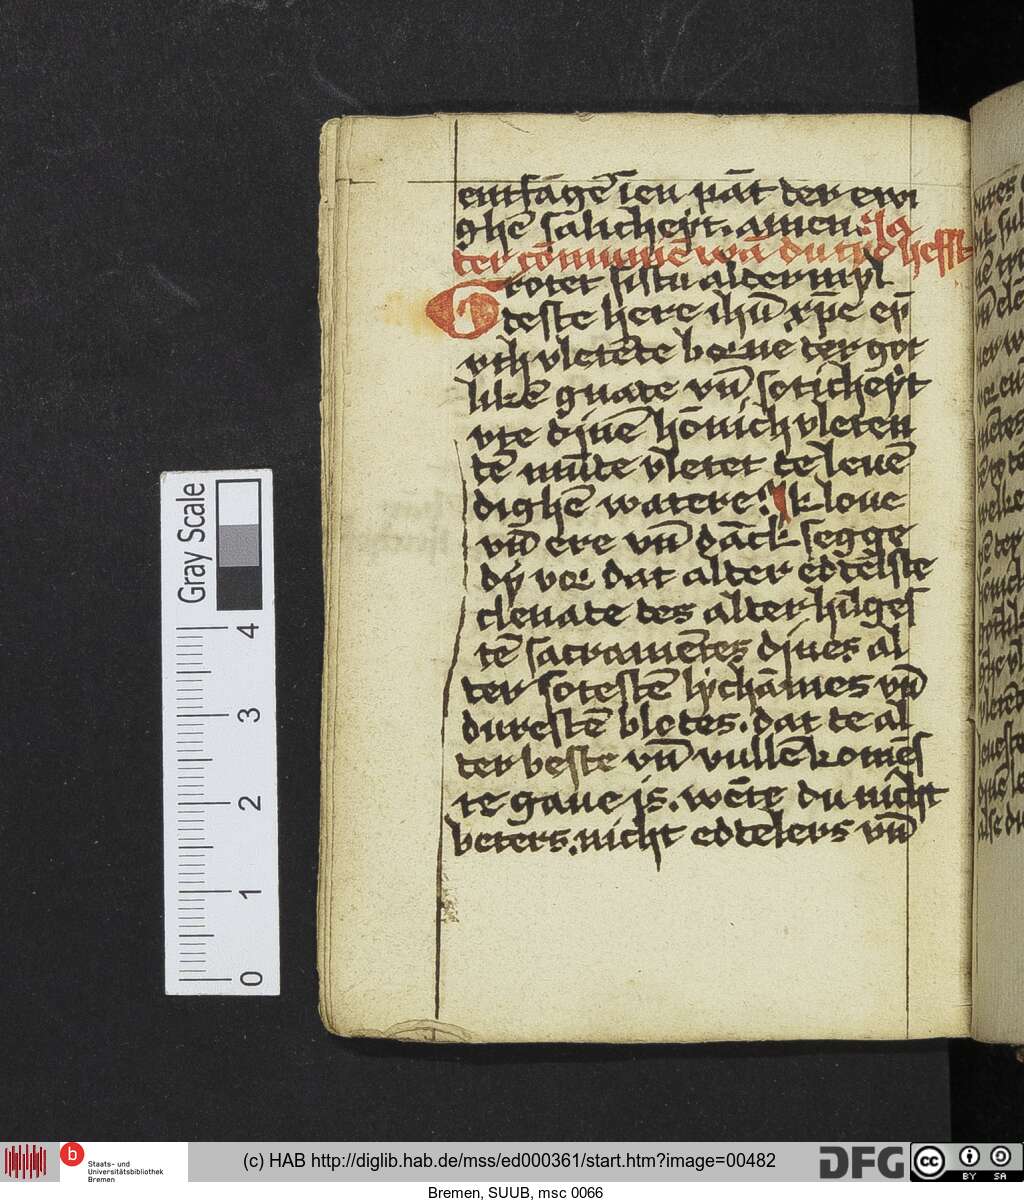 entfāgē ieu pāt der ewi
ghē salicheẏt. amen. Na
der cōmuniē wā du tijd hefst
Grotet sistu aldermyl
deste here ihū xp̄e eyn̄
vth vletēde borne der got
likē gnade vn̄ soticheẏt
vte dinē hōnich vleten
dē mūde vletet de leuē
dighē watere. Ik loue
vn̄ ere vn̄ dāck segge
dẏ vor dat alder eddelste
clenade des alder hilges
tē sacramētes dines al
der sotestē lẏchāmes vn̄
durestē blodes. dat de al
der beste vn̄ vullēkomēs
te gaue is. wēte du nicht
beters. nicht eddelers vn̄
Gray Scale
4
3
2
1
0
b
Staats- und
Universitätsbibliothek
Bremen
(c) HAB http://diglib.hab.de/mss/ed000361/start.htm?image=00482
DFG
cc
BY SA
Bremen, SUUB, msc 0066